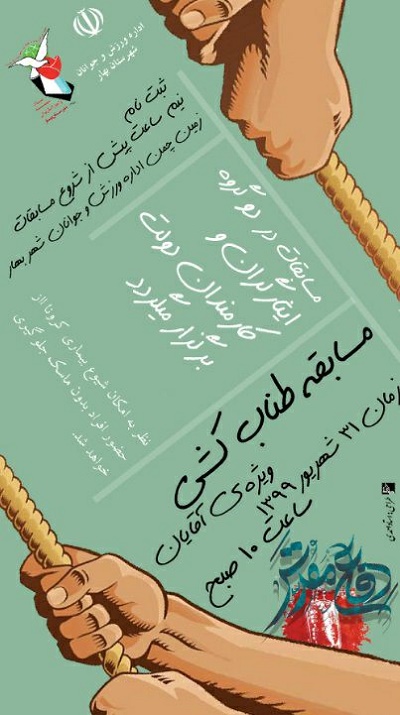 اداره ورزش و جوانان
شهرستان بهار
ثبت نام
نیم ساعت پیش از شروع مسابقات
زمین چمن اداره ورزش و جوانان شهر بهار
مسابقات در دو گروه
ایثارگران و
کارمندان دولت
برگزار میگردد
نظر به امکان شیوع بیماری کرونا از
حضور افراد بدون ماسک جلوگیری
خواهد شد
مسابقه طناب کشی
ویژه ی آقایان
زمان ۳۱ شهریور ۱۳۹۹
ساعت ۱۰ صبح
دفاع مقدس